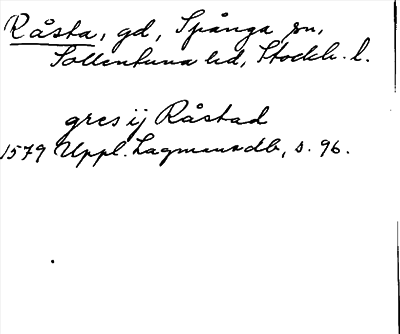 Råsta, gd, Spånga sn,
Sollentuna hd, Stockh. l.
gres ij Råstad
1579 Uppl. Lagmansdb, s. 96.